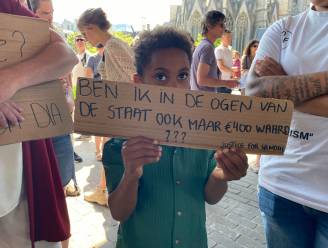 BEN IK IN DE OGEN VAN
DE STAAT OOK MAAR €400 WAARD
???
JUSTICE FOR
ISM"